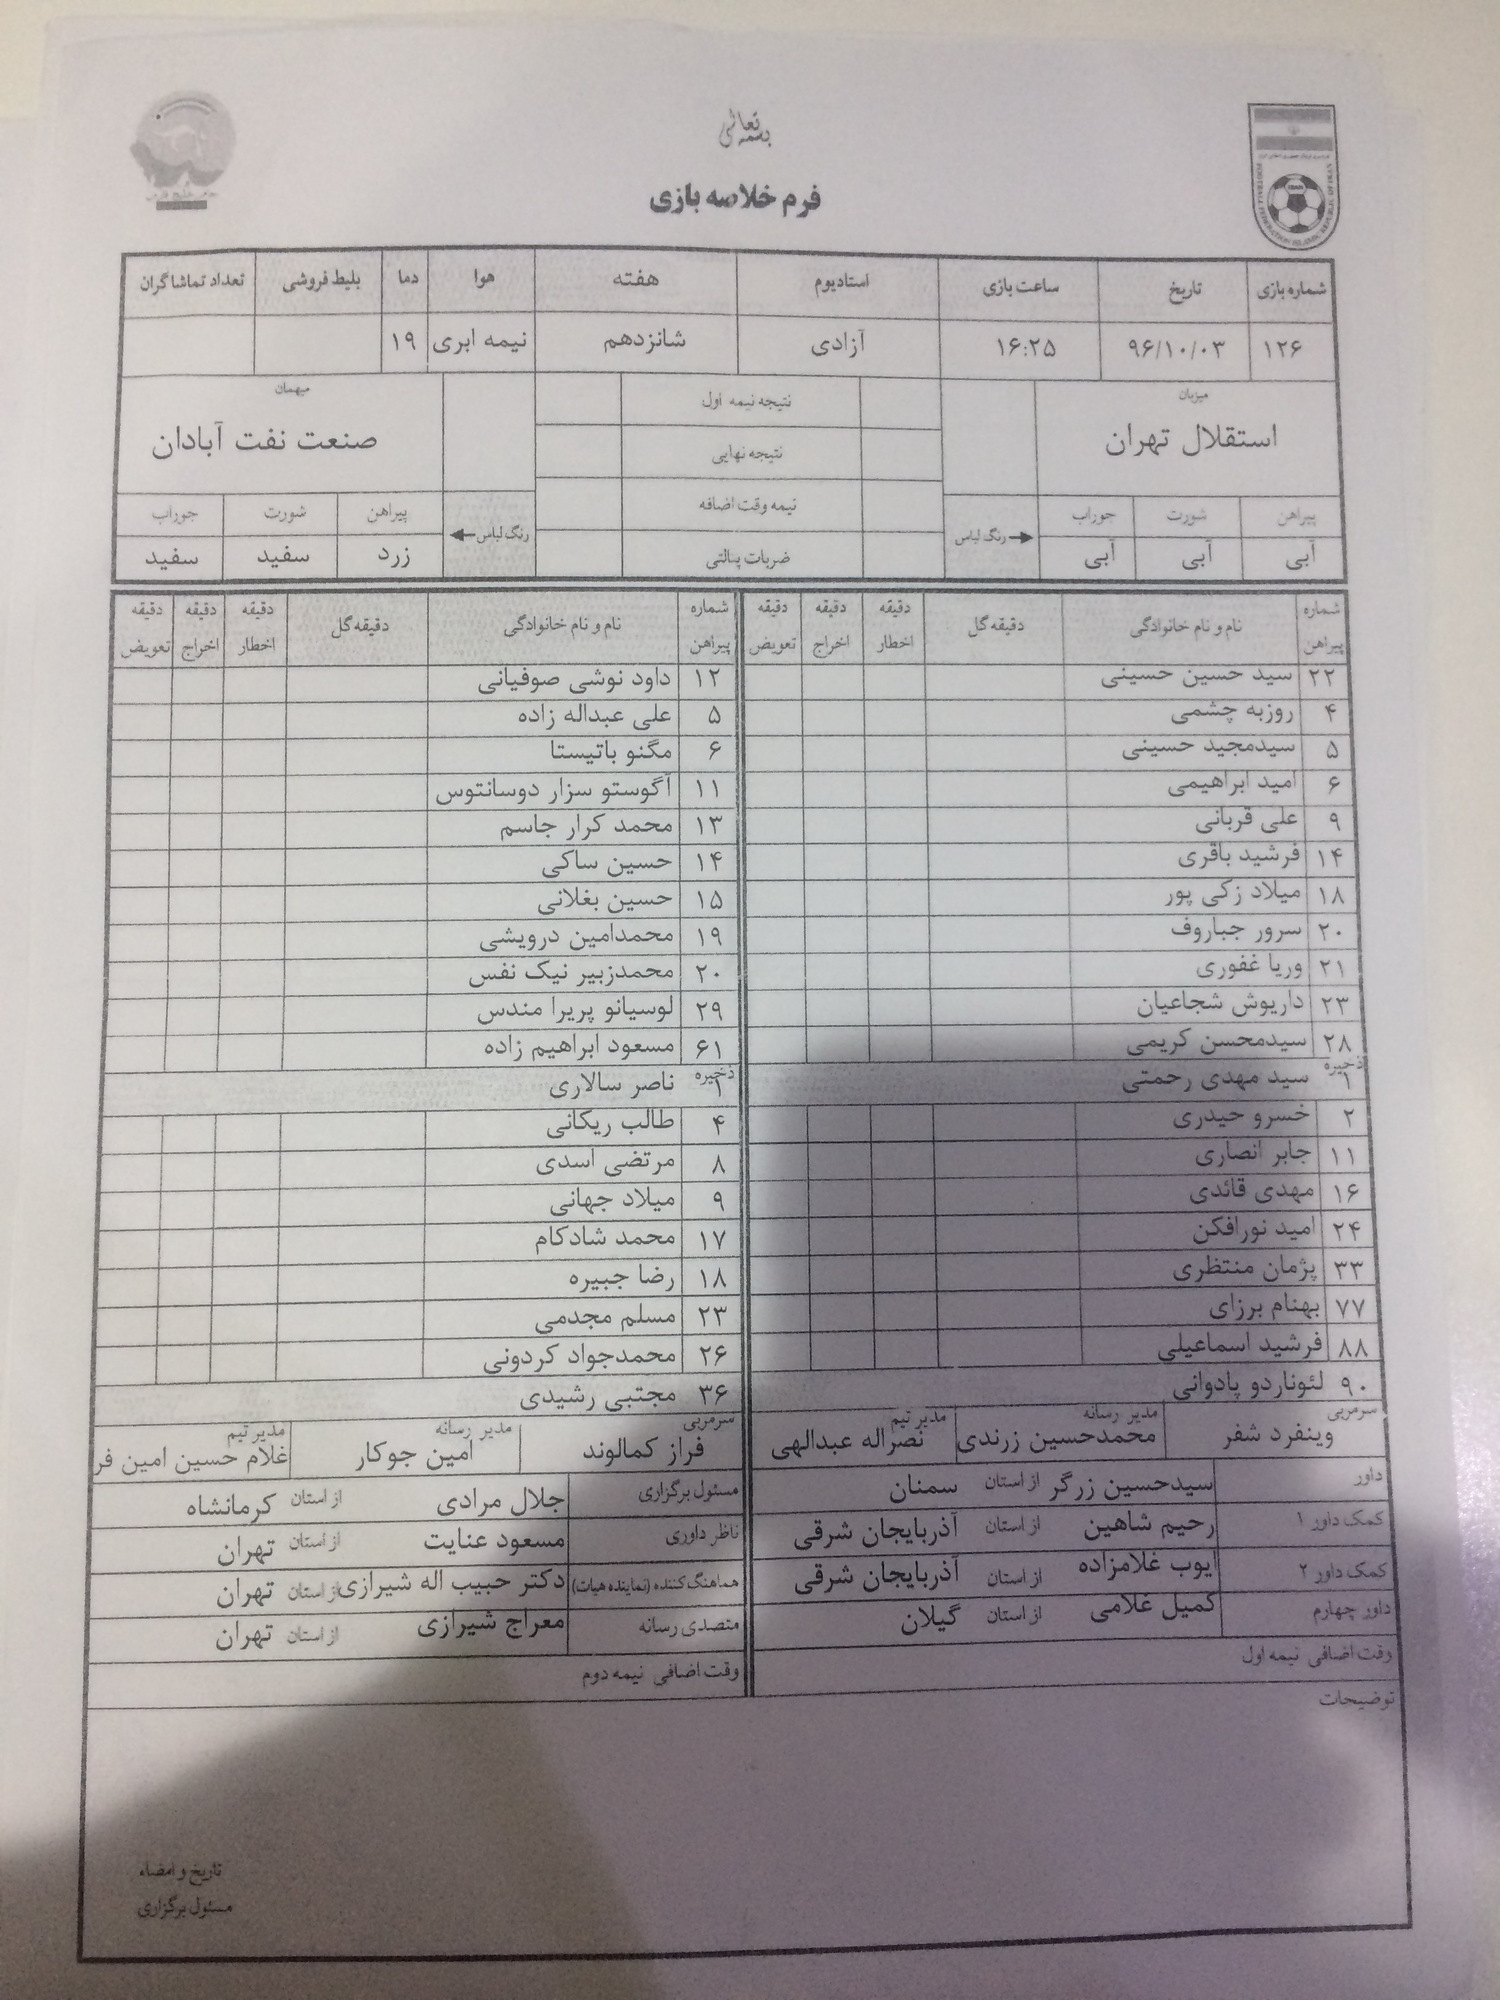 بسمه تعالی
فرم خلاصه بازی
FOOTBALL FEDERATION ISLAMIC REPUBLIC OF IRAN
شماره بازی تاریخ ساعت بازی استادیوم هفته هوا دما بلیط فروشی تعداد تماشاگران
۱۲۶ ۹۶/۱۰/۰۳ ۱۶:۲۵ آزادی شانزدهم نیمه ابری ۱۹
میزبان نتیجه نیمه اول میهمان
استقلال تهران نتیجه نهایی صنعت نفت آبادان
پیراهن شورت جوراب رنگ لباس نیمه وقت اضافه رنگ لباس پیراهن شورت جوراب
آبی آبی آبی ضربات پنالتی زرد سفید سفید
شماره پیراهن نام و نام خانوادگی دقیقه گل دقیقه اخطار دقیقه اخراج دقیقه تعویض شماره پیراهن نام و نام خانوادگی دقیقه گل دقیقه اخطار دقیقه اخراج دقیقه تعویض
۲۲ سید حسین حسینی ۱۲ داود نوشی صوفیانی
۴ روزبه چشمی ۵ علی عبداله زاده
۵ سیدمجید حسینی ۶ مگنو باتیستا
۶ امید ابراهیمی ۱۱ آگوستو سزار دوسانتوس
۹ علی قربانی ۱۳ محمد کرار جاسم
۱۴ فرشید باقری ۱۴ حسین ساکی
۱۸ میلاد زکی پور ۱۵ حسین بغلانی
۲۰ سرور جباروف ۱۹ محمدامین درویشی
۲۱ وریا غفوری ۲۰ محمدزبیر نیک نفس
۲۳ داریوش شجاعیان ۲۹ لوسیانو پریرا مندس
۲۸ سیدمحسن کریمی ۶۱ مسعود ابراهیم زاده
ذخیره ذخیره
۱ سید مهدی رحمتی ۱ ناصر سالاری
۲ خسرو حیدری ۴ طالب ریکانی
۱۱ جابر انصاری ۸ مرتضی اسدی
۱۶ مهدی قائدی ۹ میلاد جهانی
۲۴ امید نورافکن ۱۷ محمد شادکام
۳۳ پژمان منتظری ۱۸ رضا جبیره
۷۷ بهنام برزای ۲۳ مسلم مجدمی
۸۸ فرشید اسماعیلی ۲۶ محمدجواد کردونی
۹۰ لئوناردو پادوانی ۳۶ مجتبی رشیدی
سرمربی مدیر رسانه مدیر تیم سرمربی مدیر رسانه مدیر تیم
وینفرد شفر محمدحسین زرندی نصراله عبدالهی فراز کمالوند امین جوکار غلام حسین امین فر
داور سیدحسین زرگر از استان سمنان مسئول برگزاری جلال مرادی از استان کرمانشاه
کمک داور ۱ رحیم شاهین از استان آذربایجان شرقی ناظر داوری مسعود عنایت از استان تهران
کمک داور ۲ ایوب غلامزاده از استان آذربایجان شرقی هماهنگ کننده (نماینده هیات) دکتر حبیب اله شیرازی از استان تهران
داور چهارم کمیل غلامی از استان گیلان متصدی رسانه معراج شیرازی از استان تهران
وقت اضافی نیمه اول وقت اضافی نیمه دوم
توضیحات
تاریخ و امضاء
مسئول برگزاری